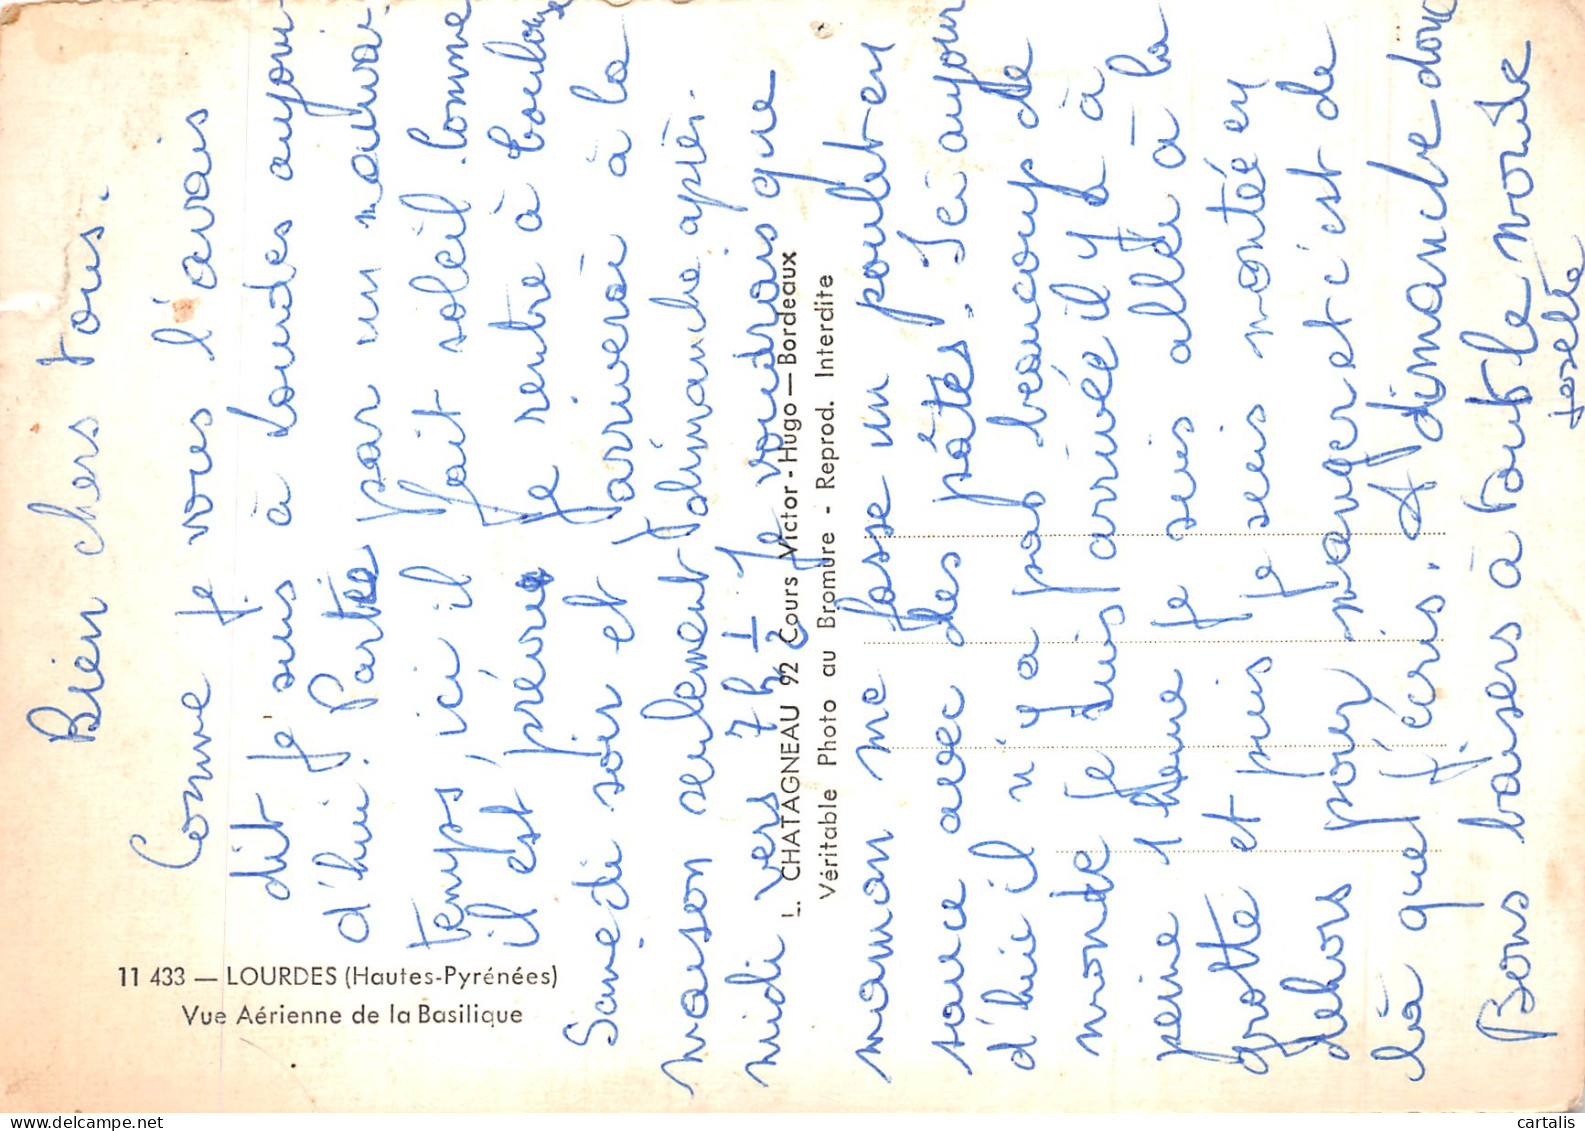 11 433 — LOURDES (Hautes-Pyrénées)
Vue Aérienne de la Basilique
Bien chers tous.
Comme je vous l'avais
dit je suis à Lourdes aujour
d'hui. Partie par un mauvai
temps, ici il fait soleil comme
il est prévu je rentre à Toulouse
Samedi soir et j'arriverai à la
maison seulement dimanche après.
midi vers 7 h 1/2 Je voudrais que
L. CHATAGNEAU 92 Cours Victor-Hugo — Bordeaux
Véritable Photo au Bromure - Reprod. Interdite
maman me fasse un poulet en
sauce avec des pâtes. Ici aujour
d'hui il n'y a pas beaucoup de
monde je suis arrivée il y a à
peine 1 heure je suis allée à la
grotte et puis je suis montée en
dehors pour manger et c'est de
là que j'écris. A dimanche donc
Bons baisers à tout le monde
Josette
cartalis